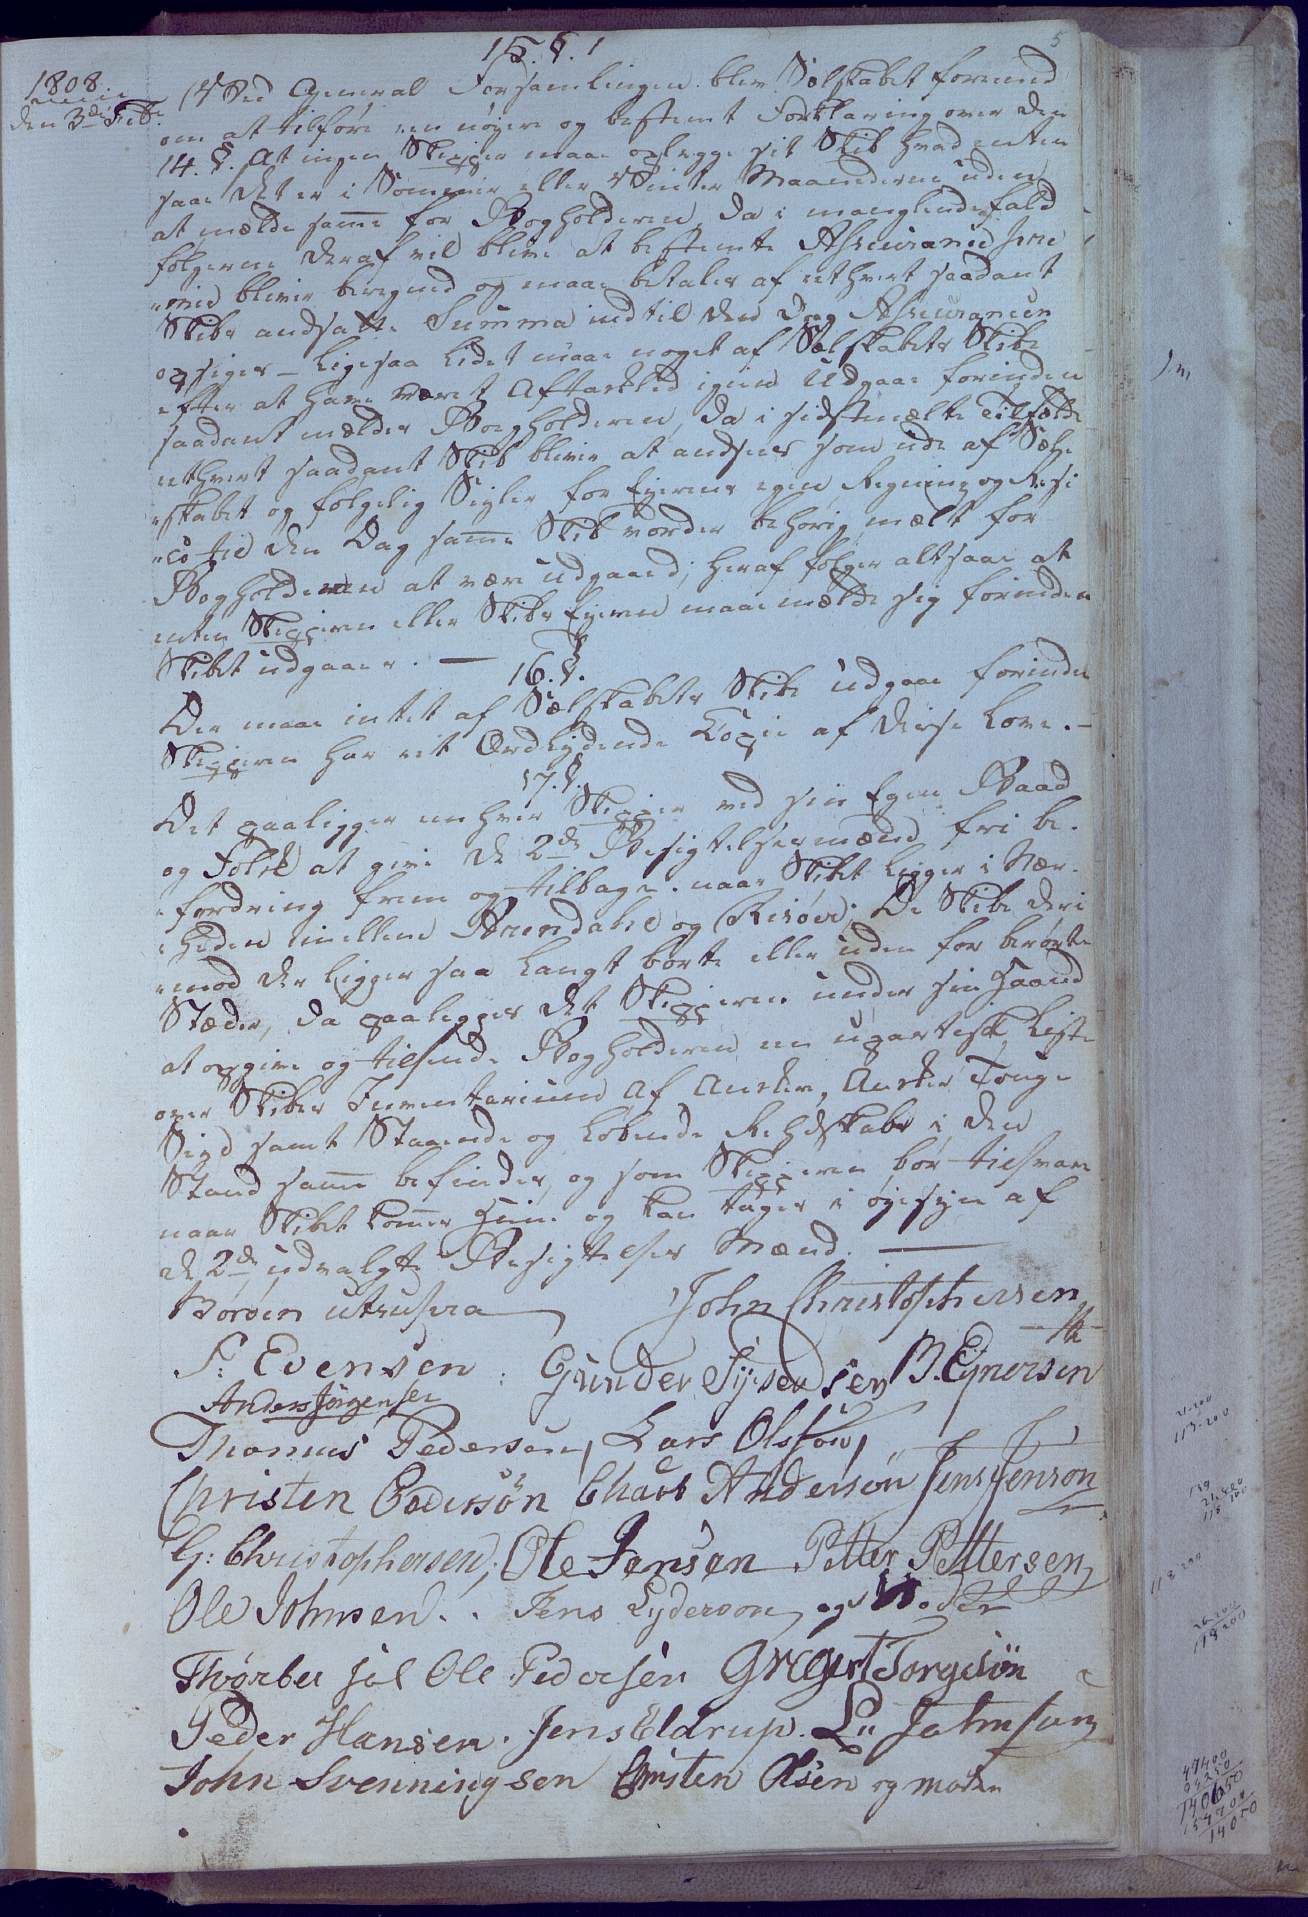 5
15. §.
1808.
den 3de Feb:
Ved General Forsamlingen blev Selskabet foreened
om at tilføre en nøyere og bestemt Forklaring over den
14. §. At ingen Skipper maae oplegge sit Skib hvad enten
saa det er i Sommer eller Vinter Maanederne uden
at melde samme for Bogholderen, da i manglende fald
følgerne deraf vil blive at bestemte Assurance Præ
mie bliver beregned og maae betales af ethvert saadant
Skibs andsatte Summa indtil den Dag Assurancen
opsiges – ligesaa lidet maae noget af Selskabets Skibe
efter at have været Aftaklid igien Udgaae forinden
saadant meldes Bogholderen, da i sidstmælte Tilfælde
ethvert saadant Skib bliver at andsees som ude af Sel-
skabet og følgelig Seyler for Eyerens egen Regning og Risi
co til den Dag samme Skib vorder behørig mælt for
Bogholderen at være udgaaed; heraf følger altsaa at
enten Skipperen eller Skibs Eyeren maae melde sig forinden
Skibet udgaaer. —
16. §.
Der maae intet af Selskabets Skibe udgaae forinden
Skipperen har eit Ordlydende Copie af disse Love. –
17. §.
Det paaligger enhver Skipper ved sin Egen Baad
og Folk at give de 2de Besigtelsesmænd fri be-
fordring frem og tilbage naar Skibet ligger i Nær-
heden imellem Arendahl og Risøer; De Skibe deri
mod der ligger saa langt borte eller uden for berørte
Stæder, da paaligger det Skipperen under sin Haand
at opgive og tilsende Bogholderen en upartisk Liste
over Skibets Inventarium af Ankere, Anker Touge
Seyl samt Staaende og Løbende Redskabe i den
Stand samme befindes, og som Skipperen bør tilsvare
naar Skibet kommer hiem og kan tages i øyesyn af
de 2de udvalgte Besigtelses Mænd. —
Borøen utsupra John Christophersen
S: Evensen. Gunder B. Eynersen
Anders Jörgensen
Thomas Pedersen, Lars Olsson,
Christen Pedersön Andersön Jens Jenson
G: Christophersen, Ole Jensen Petter Pettersen
Ole Johnsen.. Jens Lydersøn og
Ole Pedersen Gregert Torgesön
Peder Hansen. Jens Eldrup. Johnson
John Svenningsen Christen Olsen og Moder